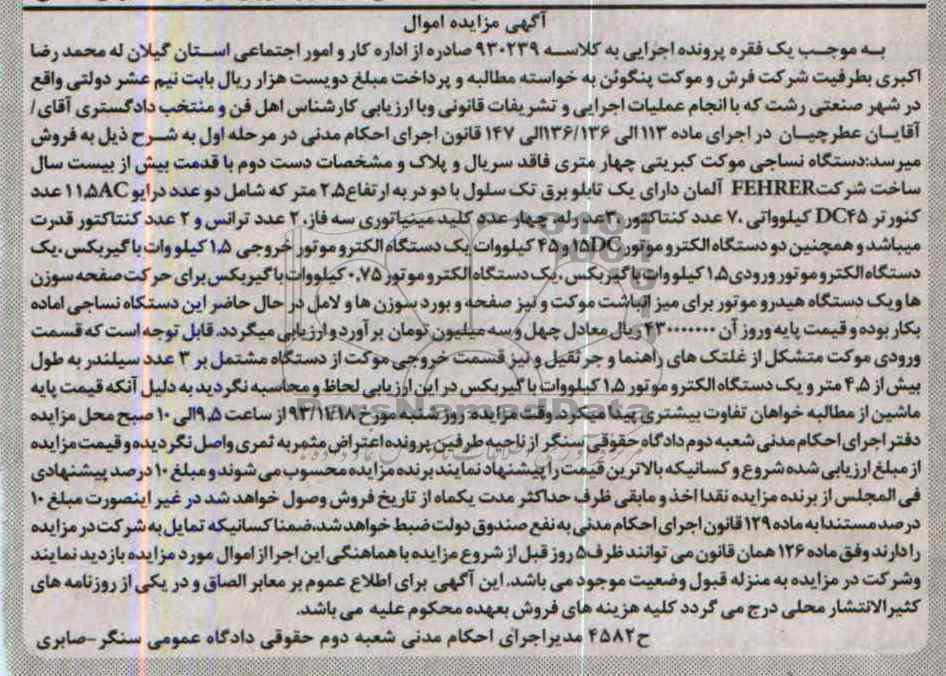 آگهی مزایده اموال
به موجب یک فقره پرونده اجرایی به کلاسه ۹۳۰۲۳۹ صادره از اداره کار و امور اجتماعی استان گیلان له محمد رضا
اکبری بطرفیت شرکت فرش و موکت پنگوئن به خواسته مطالبه و پرداخت مبلغ دویست هزار ریال بابت نیم عشر دولتی واقع
در شهر صنعتی رشت که با انجام عملیات اجرایی و تشریفات قانونی وبا ارزیابی کارشناس اهل فن و منتخب دادگستری آقای/
آقایان عطرچیان در اجرای ماده ۱۱۳ الی ۱۳۶/۱۳۶الی ۱۴۷ قانون اجرای احکام مدنی در مرحله اول به شرح ذیل به فروش
میرسد:دستگاه نساجی موکت کبریتی چهار متری فاقد سریال و پلاک و مشخصات دست دوم با قدمت بیش از بیست سال
ساخت شرکتFEHRER آلمان دارای یک تابلو برق تک سلول با دو در به ارتفاع۲٫۵ متر که شامل دو عدد درایو ۱۱٫۵AC عدد
کنورتر DC۴۵ کیلوواتی ۷۰ عدد کنتاکتور ۳۰عدد رله، چهار عدد کلید مینیاتوری سه فاز، ۲ عدد ترانس و ۲ عدد کنتاکتور قدرت
میباشد و همچنین دو دستگاه الکترو موتور ۱۵DC و ۴۵ کیلووات یک دستگاه الکترو موتور خروجی ۱٫۵ کیلو وات با گیربکس ،یک
دستگاه الکترو موتور ورودی۱٫۵ کیلو وات با گیربکس ،یک دستگاه الکترو موتور ۰٫۷۵ کیلووات با گیربکس برای حرکت صفحه سوزن
ها و یک دستگاه هیدرو موتور برای میز انباشت موکت و نیز صفحه و بورد سوزن ها و لامل در حال حاضر این دستگاه نساجی اماده
بکار بوده و قیمت پایه وروز آن ۴۳۰۰۰۰۰۰۰ ریال معادل چهل و سه میلیون تومان بر آورد و ارزیابی میگردد. قابل توجه است که قسمت
ورودی موکت متشکل از غلتک های راهنما و جر ثقیل و نیز قسمت خروجی موکت از دستگاه مشتمل بر ۳ عدد سیلندر به طول
بیش از ۴٫۵ متر و یک دستگاه الکترو موتور ۱٫۵ کیلووات با گیربکس در این ارزیابی لحاظ و محاسبه نگردید به دلیل آنکه قیمت پایه
ماشین از مطالبه خواهان تفاوت بیشتری پیدا میکرد. وقت مزایده: روز شنبه مورخ ۹۳/۱۲/۱۸ از ساعت ۹٫۵الی ۱۰ صبح محل مزایده
دفتر اجرای احکام مدنی شعبه دوم دادگاه حقوقی سنگر از ناحیه طرفین پرونده اعتراض مثمر به ثمری واصل نگردیده و قیمت مزایده
از مبلغ ارزیابی شده شروع و کسانیکه بالاترین قیمت را پیشنهاد نمایند برنده مزایده محسوب می شوند و مبلغ ۱۰ درصد پیشنهادی
فی المجلس از برنده مزایده نقدا اخذ و مابقی ظرف حداکثر مدت یکماه از تاریخ فروش وصول خواهد شد در غیر اینصورت مبلغ ۱۰
درصد مستندا به ماده ۱۲۹ قانون اجرای احکام مدنی به نفع صندوق دولت ضبط خواهد شد.ضمنا کسانیکه تمایل به شرکت در مزایده
را دارند وفق ماده ۱۲۶ همان قانون می توانند ظرف۵ روز قبل از شروع مزایده با هماهنگی این اجرا از اموال مورد مزایده بازدید نمایند
وشرکت در مزایده به منزله قبول وضعیت موجود می باشد. این آگهی برای اطلاع عموم بر معابر الصاق و در یکی از روزنامه های
کثیرالانتشار محلی درج می گردد کلیه هزینه های فروش بعهده محکوم علیه می باشد.
ح۴۵۸۲ مدیراجرای احکام مدنی شعبه دوم حقوقی دادگاه عمومی سنگر-صابری
ParsNamadData